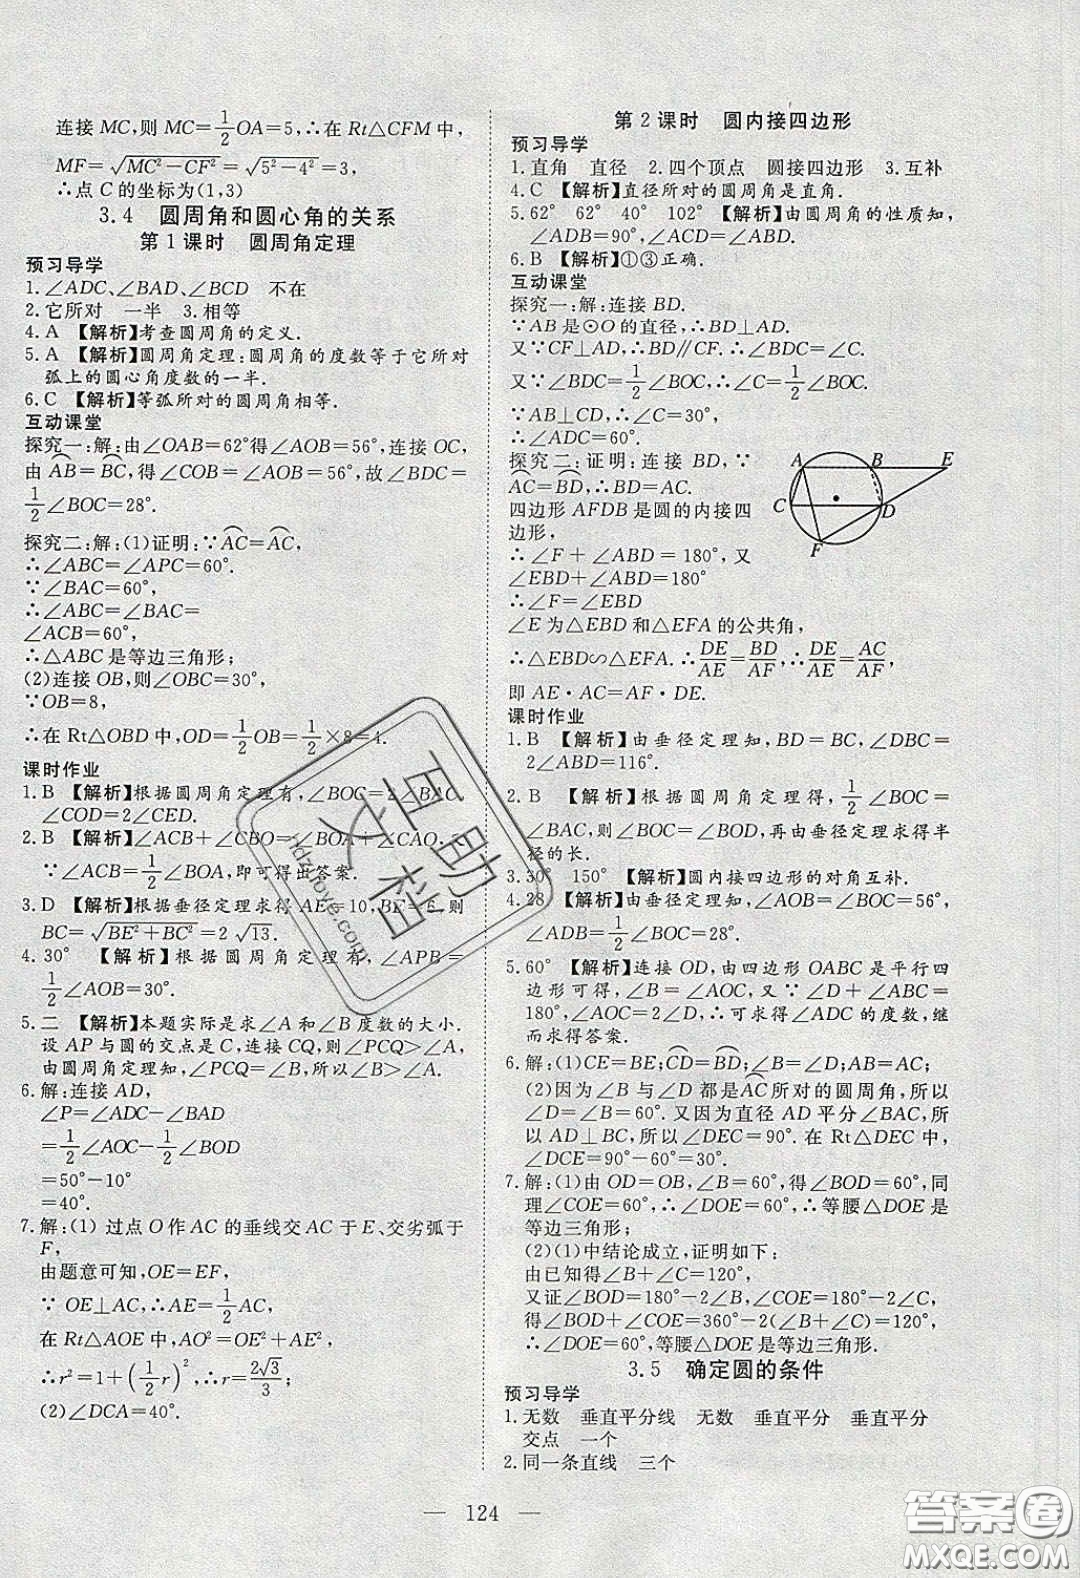 连接 MC,则 MC=1/2OA=5,在 Rt△CFM 中,
MF=√(MC²-CF²)=√(5²-4²)=3,
∴点 C 的坐标为(1,3)
3.4 圆周角和圆心角的关系
第1课时 圆周角定理
预习导学
1.∠ADC、∠BAD、∠BCD 不在
2.它所对 一半 3.相等
4.A 【解析】考查圆周角的定义.
5.A 【解析】圆周角定理:圆周角的度数等于它所对
弧上的圆心角度数的一半.
6.C 【解析】等弧所对的圆周角相等.
互动课堂
探究一:解:由∠OAB=62°得∠AOB=56°,连接 OC,
由 AB⌒=BC⌒,得∠COB=∠AOB=56°,故∠BDC=
1/2∠BOC=28°.
探究二:解:(1)证明:∵AC⌒=AC⌒,
∴∠ABC=∠APC=60°.
∵∠BAC=60°,
∴∠ABC=∠BAC=
∠ACB=60°,
∴△ABC 是等边三角形;
(2)连接 OB,则∠OBC=30°,
∵OB=8,
∴在 Rt△OBD 中,OD=1/2OB=1/2×8=4.
课时作业
1.B 【解析】根据圆周角定理有,∠BOC=2∠BAC,
∠COD=2∠CED.
2.B 【解析】∠ACB+∠CBO=∠BOA+∠CAO.
∵∠ACB=1/2∠BOA,即可得出答案.
3.D 【解析】根据垂径定理求得 AE=10,BE=6,则
BC=√(BE²+BC²)=2√13.
4.30° 【解析】根据圆周角定理有,∠APB=
1/2∠AOB=30°.
5.二 【解析】本题实际是求∠A 和∠B 度数的大小.
设 AP 与圆的交点是 C,连接 CQ,则∠PCQ>∠A,
由圆周角定理知,∠PCQ=∠B,所以∠B>∠A.
6.解:连接 AD,
∠P=∠ADC-∠BAD
=1/2∠AOC-1/2∠BOD
=50°-10°
=40°.
7.解:(1)过点 O 作 AC 的垂线交 AC 于 E、交劣弧于
F,
由题意可知,OE=EF,
∵ OE⊥AC,∴AE=1/2AC,
在 Rt△AOE 中,AO²=OE²+AE²,
∴r²=1+(1/2r)²,∴r=2√3/3;
(2)∠DCA=40°.
第2课时 圆内接四边形
预习导学
1.直角 直径 2.四个顶点 圆接四边形 3.互补
4.C 【解析】直径所对的圆周角是直角.
5.62° 62° 40° 102° 【解析】由圆周角的性质知,
∠ADB=90°,∠ACD=∠ABD.
6.B 【解析】①③正确.
互动课堂
探究一:解:连接 BD.
∵AB 是⊙O 的直径,∴BD⊥AD.
又∵CF⊥AD,∴BD∥CF.∴∠BDC=∠C.
又∵∠BDC=1/2∠BOC,∴∠C=1/2∠BOC.
∵AB⊥CD,∴∠C=30°,
∴∠ADC=60°.
探究二:证明:连接 BD,∵
AC⌒=BD⌒,∴BD=AC.
四边形 AFDB 是圆的内接四
边形,
∴∠F+∠ABD=180°,又
∠EBD+∠ABD=180°
∴∠F=∠EBD
∠E 为△EBD 和△EFA 的公共角,
∴△EBD∽△EFA.∴DE/AE=BD/AF,∴DE/AE=AC/AF,
即 AE·AC=AF·DE.
A B E
C D
F
课时作业
1.B 【解析】由垂径定理知,BD=BC,∠DBC=
2∠ABD=116°.
2.B 【解析】根据圆周角定理得,1/2∠BOC=
∠BAC,则∠BOC=∠BOD,再由垂径定理求得半
径的长.
3.30° 150° 【解析】圆内接四边形的对角互补.
4.28 【解析】由垂径定理知,∠AOB=∠BOC=56°,
∠ADB=1/2∠BOC=28°.
5.60° 【解析】连接 OD,由四边形 OABC 是平行四
边形可得,∠B=∠AOC,又∵∠D+∠ABC=
180°,∠AOC=2∠D,∴可求得∠ADC 的度数,继
而求得答案.
6.解:(1)CE=BE;CD⌒=BD⌒;∠B=∠D;AB=AC;
(2)因为∠B 与∠D 都是AC⌒所对的圆周角,所以
∠D=∠B=60°.又因为直径 AD 平分∠BAC,所
以 AD⊥BC,所以∠DEC=90°.在 Rt△DEC 中,
∠DCE=90°-60°=30°.
7.解:(1)由 OD=OB,∠B=60°,得∠BOD=60°,同
理∠COE=60°,∴∠DOE=60°,∴等腰△DOE 是
等边三角形;
(2)(1)中结论成立,证明如下:
由已知得∠B+∠C=120°,
又证∠BOD=180°-2∠B,∠COE=180°-2∠C,
得∠BOD+∠COE=360°-2(∠B+∠C)=120°,
∴∠DOE=60°,等腰△DOE 是等边三角形.
3.5 确定圆的条件
预习导学
1.无数 垂直平分线 无数 垂直平分 垂直平分
交点 一个
2.同一条直线 三个
124
互助文档
hdzlove.com
答案圈
MXQE.COM